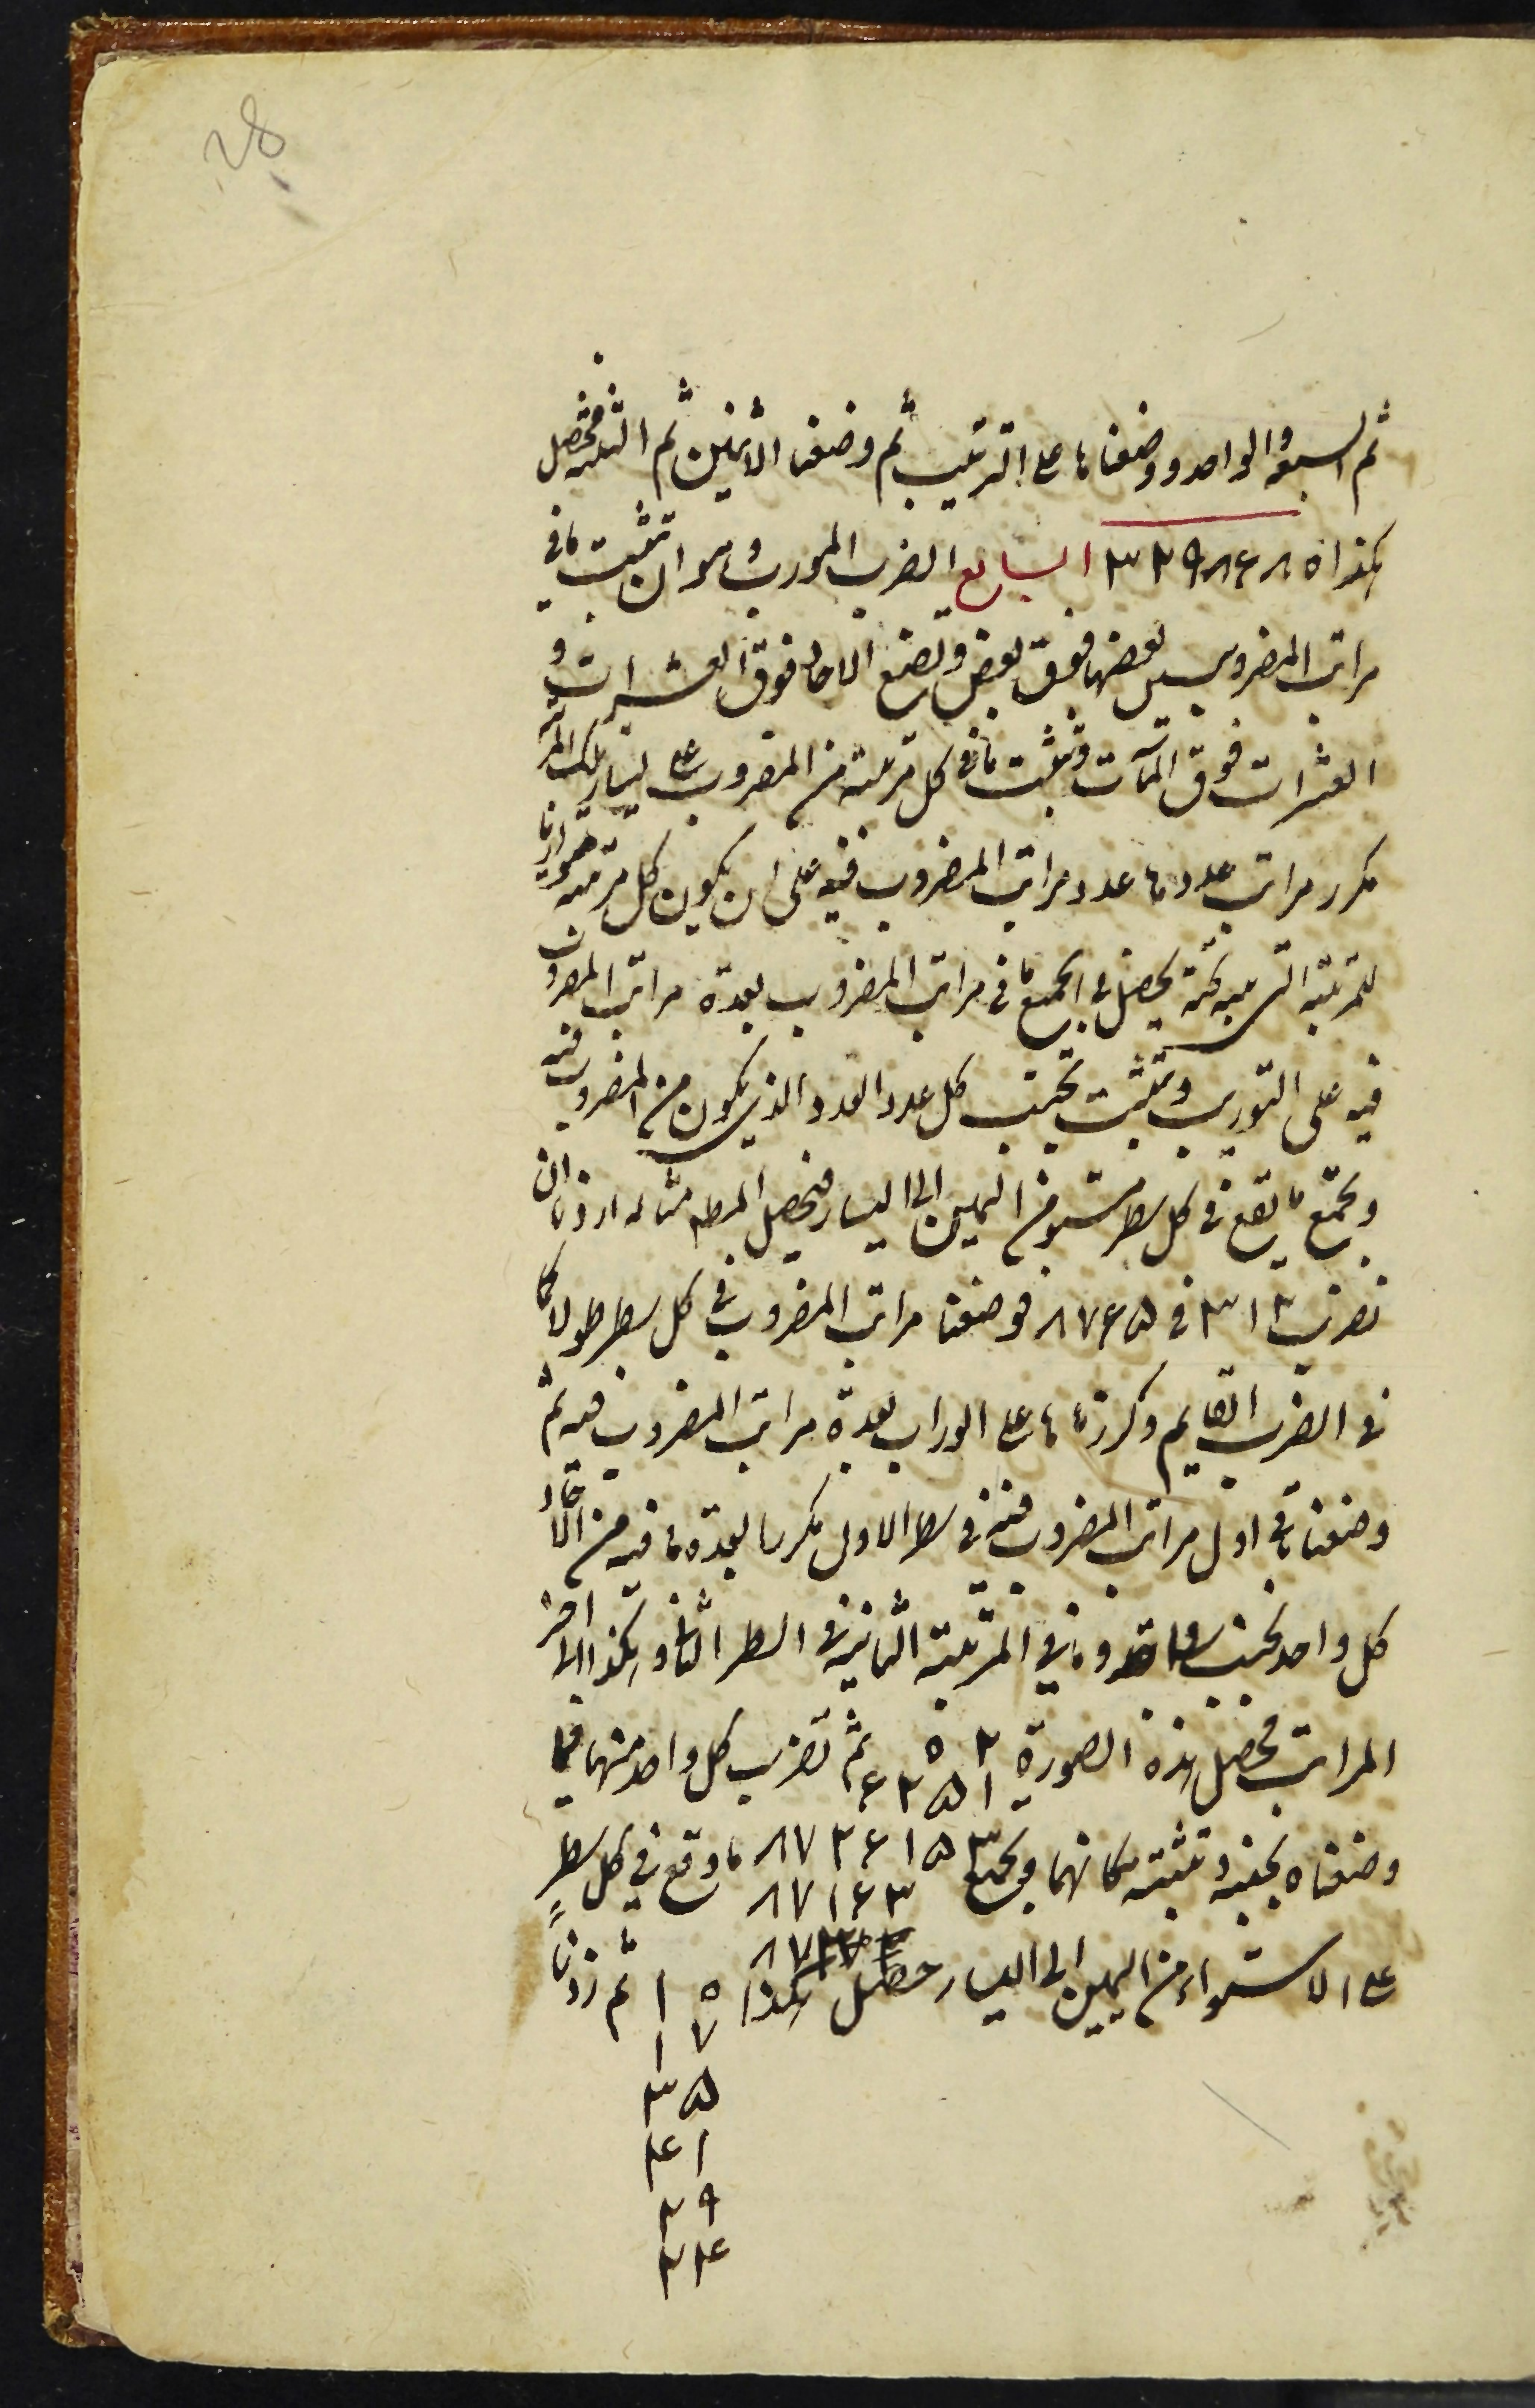 28
ثم السبعة والواحد ووضعناها على الترتيب ثم وضعنا الاثنين ثم الثلثه فيحصل
هكذا ۳۲۹۸۶۸۵ السابع الضرب المورب وهو ان تثبت ما في
مراتب المضروبين بعضها فوق بعض وتضع الاحاد فوق العشرات و
العشرات فوق المآت وتثبت ما في كل مرتبة من المضروب على يسار تلك المرتبة
مكرر مراتب عددها عدد مراتب المضروب فيه على ان يكون كل مرتبه
للمرتبة التي تحته يحصل في الجميع ما في مراتب المضروب بعدة مراتب المضروب
فيه على التوريب وتثبت تحت كل عدد العدد الذي يكون من المضروب فيه
وتجمع ما تقع في كل سطر مستو من اليمين الى اليسار فيحصل المطه مثاله اردنا ان
نضرب ۳۱۲ في ۸۷۶۵ فوضعنا مراتب المضروب في كل سطر طولا كما
في الضرب القايم وكررناها على الوراب بعدة مراتب المضروب فيه ثم
وضعنا ما في اول مراتب المضروب فيه في سطر الاول مكررا بعدة ما فيه من الآحاد
كل واحد تحت وما في المرتبة الثانية في السطر الثاني وهكذا الى آخر
المراتب فيحصل هذه الصورة ثم نضرب كل واحد منهما فيما
۵ ۲
۶ ۲ ۵ ۱
وضعناه بجنبه ونثبته مكانهما ونجمع ما وقع في كل سطر
۸۷ ۲۶ ۱۵ ۳
۸۷ ۱۶ ۳
على الاستواء من اليمين الى اليسار حصل هكذا ثم زدنا
۱ ۵
۱ ۷
۳ ۵
۴ ۱
۲ ۹
۲ ۴